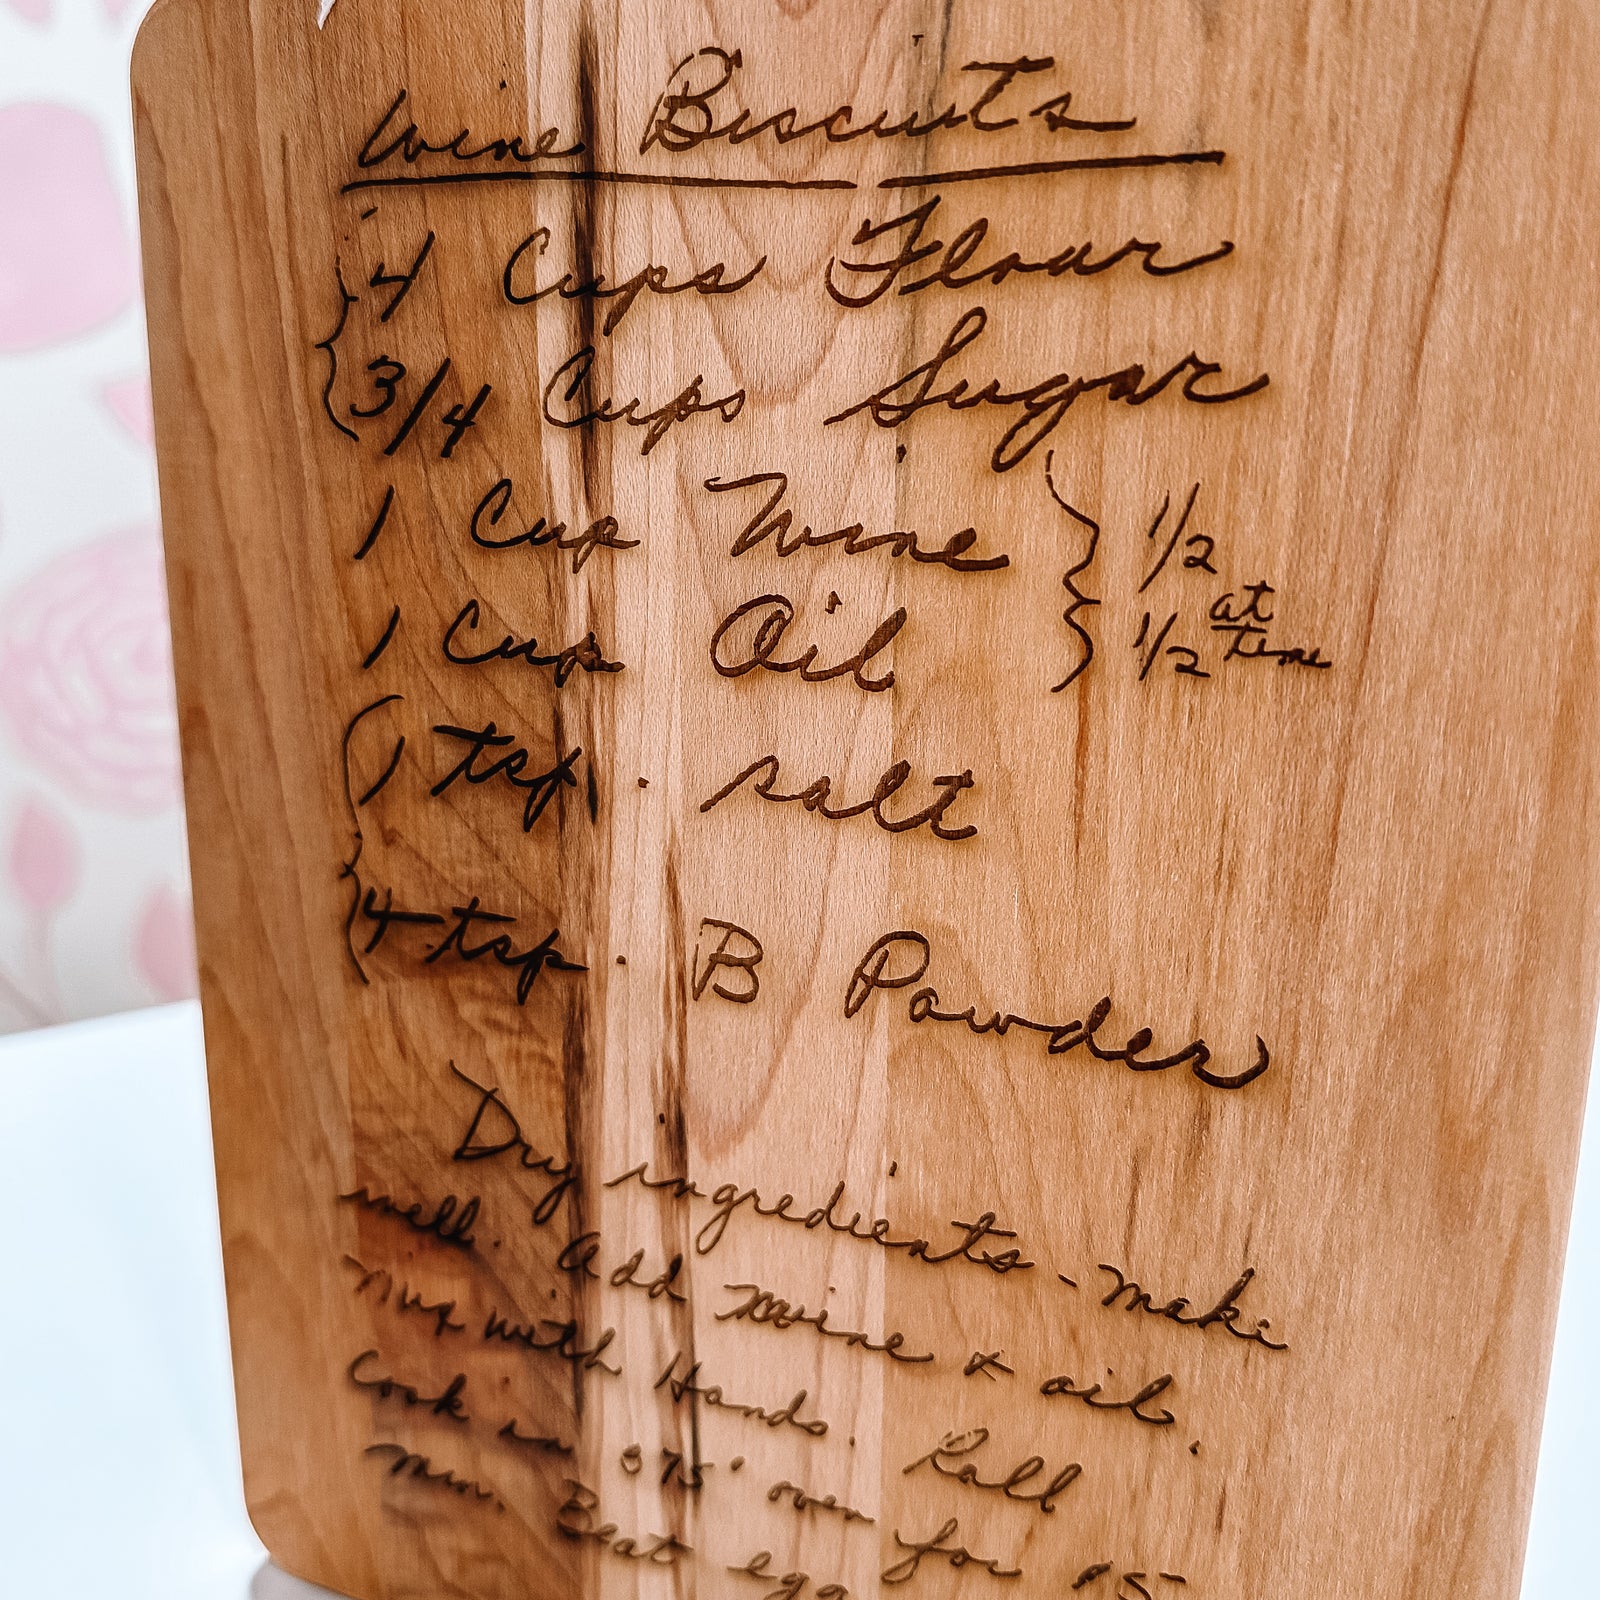 Wine Biscuits
4 Cups Flour
3/4 Cups Sugar
1 Cup Wine 1/2
at
1 Cup Oil 1/2 time
1 tsp. salt
4 tsp. B Powder
Dry ingredients - make
well. Add wine & oil.
Mix with Hands. Roll
Cook in 375° oven for 15
Min. Beat egg